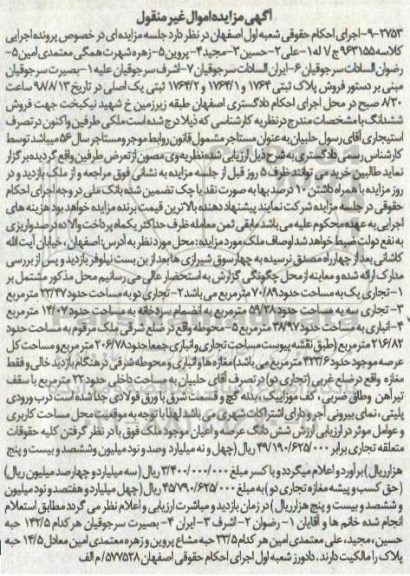 آگهی مزایده اموال غیر منقول
۹-۲۷۵۳- اجرای احکام حقوقی شعبه اول اصفهان در نظر دارد جلسه مزایده ای در خصوص پرونده اجرایی
کلاسه ۹۶۳۱۵۵ ج ۷ له ۱-علی ۲-حسین ۳-مجید ۴-پروین ۵-زهره شهرت همگی معتمدی امین ۵-
رضوان السادات سرجوقیان ۶-ایران السادات سرجوقیان ۷-اشرف سرجوقیان علیه ۱-بصیرت سرجوقیان
مبنی بر دستور فروش پلاک ثبتی ۱۷۶۳ و ۱۷۶۴/۱ و ۱۷۶۴/۲ ثبتی یک اصلی در تاریخ ۹۸/۸/۱۳ ساعت
۸:۳۰ صبح در محل اجرای احکام دادگستری اصفهان طبقه زیرزمین خ شهید نیکبخت جهت فروش
ششدانگ با مشخصات مندرج در نظریه کارشناسی که ذیلا درج شده است ملکی طرفین واکنون در تصرف
استیجاری آقای رسول حلبیان به عنوان مستاجر مشمول قانون روابط موجر و مستاجر سال ۵۶ میباشد توسط
کارشناس رسمی دادگستری به شرح ذیل ارزیابی شده نظریه وی مصون از تعرض طرفین واقع گردیده برگزار
نماید طالبین خرید می توانند ظرف ۵ روز قبل از جلسه مزایده به نشانی فوق مراجعه و از ملک بازدید و در
روز مزایده با همراه داشتن ۱۰ درصد بها به صورت نقد یا چک تضمین شده بانک ملی در وجه اجرای احکام
حقوقی در جلسه مزایده شرکت نمایند پیشنهاد دهنده بالاترین قیمت برنده مزایده خواهد بود هزینه های
اجرایی به عهده محکوم علیه می باشد مابقی ثمن معامله ظرف حداکثر یکماه پرداخت والا ده درصد واریزی
به نفع دولت ضبط خواهد شد اوصاف ملک مورد مزایده: محل مورد نظر به آدرس: اصفهان، خیابان آیت الله
کاشانی بعد از چهارراه مصدق نرسیده به چهارسوق شیرازی ها بعد از بن بست نیلوفر بازدید و پس از بررسی
مدارک ارائه شده و معاینه از محل چگونگی گزارش به استحضار عالی می رسانیم محل مذکور مشتمل بر
۱-تجاری یک به مساحت حدود ۷۰/۸۹ مترمربع می باشد ۲-تجاری دو به مساحت حدود ۲۲/۴۷ مترمربع
۳-تجاری سه به مساحت حدود ۵۹/۳۸ مترمربع به انضمام سردخانه به مساحت حدود ۱۴/۰۷ مترمربع
۴-انباری به مساحت حدود ۳۸/۹۷ مترمربع ۵-محوطه واقع در ضلع شرقی ملک مرقوم به مساحت حدود
۲۱۶/۸۲ مترمربع (طبق نقشه پیوست مساحت تجاری و انباری جمعا حدود ۲۰۶/۷۸ مترمربع و مساحت کل
عرصه موجود حدود ۴۲۳/۶ مترمربع می باشد) مغازه ها و انباری و محوطه شرقی در هنگام بازدید خالی و فقط
مغازه واقع در ضلع غربی (تجاری دو) در تصرف آقای حلبیان به مساحت داخلی حدود ۲۲ مترمربع با سقف
تیرآهن وطاق ضربی، کف موزاییک، بدنه گچ و قسمت شرق با ورق فولادی جدا شده است درب ورودی
پلیتی، نمای بیرونی آجر و دارای اشتراکات شهری می باشد لهذا با توجه به موقعیت محل مساحت کاربری
و عوامل موثر در ارزیابی ارزش شش دانگ عرصه و اعیان موجود ملک فوق با در نظر گرفتن کلیه حقوقات
متعلقه تجاری برابر ۴۹/۱۹۰/۶۲۵/۰۰۰ ریال (چهل و نه میلیارد وصد و نود میلیون وششصد و بیست و پنج
هزارریال) برآورد و اعلام میگردد و با کسر مبلغ ۳/۴۰۰/۰۰۰/۰۰۰ ریال (سه میلیارد و چهارصد میلیون ریال)
(حق کسب و پیشه مغازه تجاری دو) به مبلغ ۴۵/۷۹۰/۶۲۵/۰۰۰ ریال (چهل میلیارد و هفتصد و نود میلیون
و ششصد و بیست و پنج هزار ریال) در زمان بازدید و مباشرت ارزیابی و اعلام نظر می گردد مطابق استعلام
انجام شده خانم ها و آقایان ۱-رضوان ۲-اشرف ۳-ایران ۴-بصیرت سرجوقیان هر کدام ۱۴۲/۵ حبه
حسین، مجید، علی معتمدی امین هر کدام ۳۳/۵ حبه مشاع پروین و زهره معتمدی امین معادل ۱۴/۵ حبه
پلاک را مالکیت دارند. دادورز شعبه اول اجرای احکام حقوقی اصفهان ۵۷۷۵۲۸/م الف